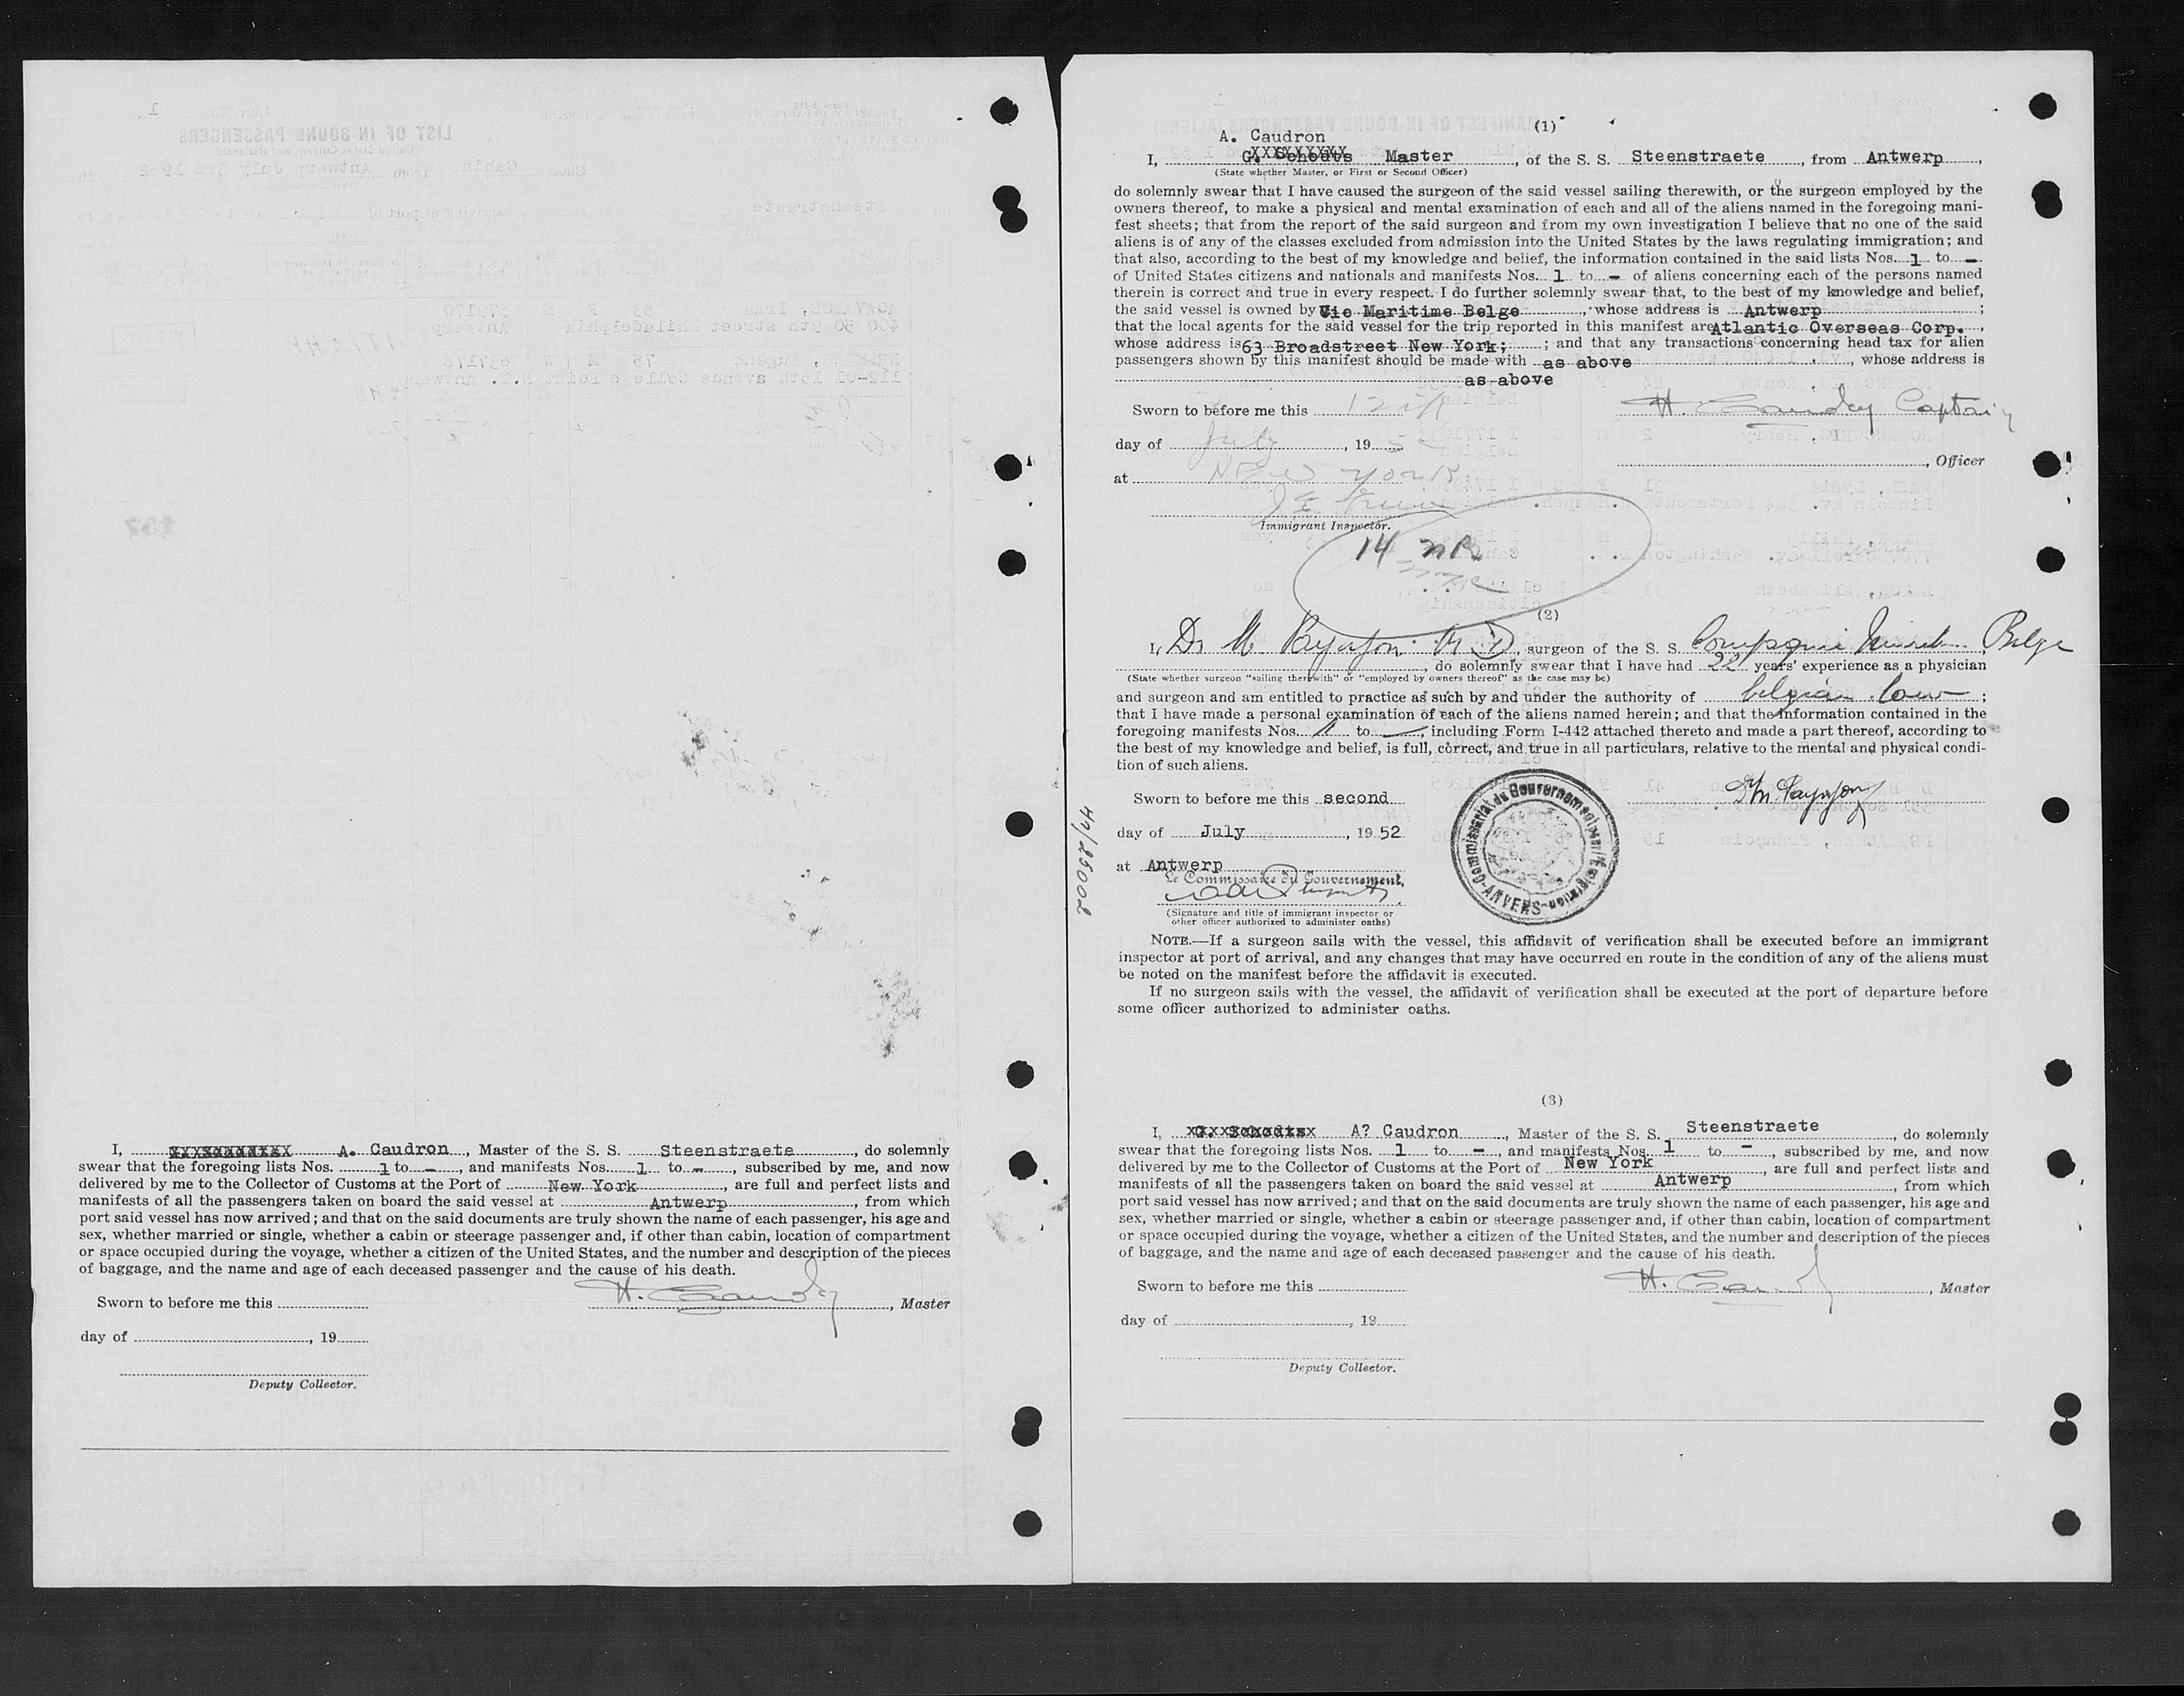 I, A. Caudron, Master of the S. S. Steenstraete, do solemnly
swear that the foregoing lists Nos. 1 to -, and manifests Nos. 1 to -, subscribed by me, and now
delivered by me to the Collector of Customs at the Port of New York, are full and perfect lists and
manifests of all the passengers taken on board the said vessel at Antwerp, from which
port said vessel has now arrived; and that on the said documents are truly shown the name of each passenger, his age and
sex, whether married or single, whether a cabin or steerage passenger and, if other than cabin, location of compartment
or space occupied during the voyage, whether a citizen of the United States, and the number and description of the pieces
of baggage, and the name and age of each deceased passenger and the cause of his death.
Sworn to before me this
, Master
day of , 19
Deputy Collector.
(1)
A. Caudron
I, G. Schodts Master, of the S. S. Steenstraete, from Antwerp,
(State whether Master, or First or Second Officer)
do solemnly swear that I have caused the surgeon of the said vessel sailing therewith, or the surgeon employed by the
owners thereof, to make a physical and mental examination of each and all of the aliens named in the foregoing mani-
fest sheets; that from the report of the said surgeon and from my own investigation I believe that no one of the said
aliens is of any of the classes excluded from admission into the United States by the laws regulating immigration; and
that also, according to the best of my knowledge and belief, the information contained in the said lists Nos. 1 to -
of United States citizens and nationals and manifests Nos. 1 to - of aliens concerning each of the persons named
therein is correct and true in every respect. I do further solemnly swear that, to the best of my knowledge and belief,
the said vessel is owned by Cie Maritime Belge, whose address is Antwerp;
that the local agents for the said vessel for the trip reported in this manifest are Atlantic Overseas Corp.,
whose address is 63 Broadstreet New York; ; and that any transactions concerning head tax for alien
passengers shown by this manifest should be made with as above, whose address is
as above
Sworn to before me this 12th
Captain
day of July, 195
, Officer
at New York
Immigrant Inspector.
14
(2)
I, Dr M. , surgeon of the S. S. Compagnie Belge
, do solemnly swear that I have had 22 years' experience as a physician
(State whether surgeon "sailing therewith" or "employed by owners thereof" as the case may be)
and surgeon and am entitled to practice as such by and under the authority of belgian law;
that I have made a personal examination of each of the aliens named herein; and that the information contained in the
foregoing manifests Nos. 1 to -, including Form I-442 attached thereto and made a part thereof, according to
the best of my knowledge and belief, is full, correct, and true in all particulars, relative to the mental and physical condi-
tion of such aliens.
Sworn to before me this second
day of July, 1952
at Antwerp
Le Commissaire du Gouvernement,
(Signature and title of immigrant inspector or
other officer authorized to administer oaths)
42/25002
NOTE.—If a surgeon sails with the vessel, this affidavit of verification shall be executed before an immigrant
inspector at port of arrival, and any changes that may have occurred en route in the condition of any of the aliens must
be noted on the manifest before the affidavit is executed.
If no surgeon sails with the vessel, the affidavit of verification shall be executed at the port of departure before
some officer authorized to administer oaths.
(3)
I, A? Caudron, Master of the S. S. Steenstraete, do solemnly
swear that the foregoing lists Nos. 1 to -, and manifests Nos. 1 to -, subscribed by me, and now
delivered by me to the Collector of Customs at the Port of New York, are full and perfect lists and
manifests of all the passengers taken on board the said vessel at Antwerp, from which
port said vessel has now arrived; and that on the said documents are truly shown the name of each passenger, his age and
sex, whether married or single, whether a cabin or steerage passenger and, if other than cabin, location of compartment
or space occupied during the voyage, whether a citizen of the United States, and the number and description of the pieces
of baggage, and the name and age of each deceased passenger and the cause of his death.
Sworn to before me this
, Master
day of , 19
Deputy Collector.